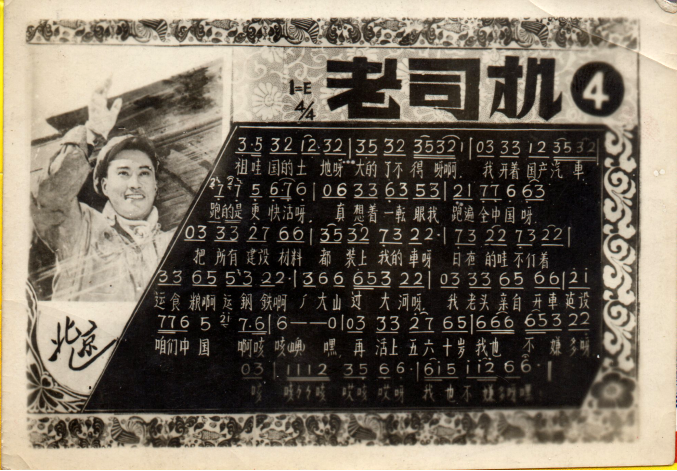 老司机 4
1=E 4/4
3·5 32 12·32 | 35 32 3532 | 03 33 12 3532
祖哇国的土 地呀 大的了不得呀啊 我开着国产汽車
7 7 5 676 | 0633 6353 | 21 77663
跑的是更快活呀 真想着一転眼我 跑遍全中国呀
03 33 27 66 | 3532 7322· | 7322 7322 |
把所有建設材料 都装上我的車呀 日爸的哇不们着
33 65 53 22 | 366 65322 | 03 33 65 66 | 2i
运食粮啊运鋼鉄啊 大山过大河呀 我老头亲自开車
776 5 2i 7·6 | 6——0 | 03 33 27 65 | 666 65322
咱们中国 啊咳咳 嘿 再活上五六十岁我也不嫌多呀
03 | 1112 35 66· | 6i5 ii2 66·
咳 咳 哎咳哎呀 我也不嫌
北京